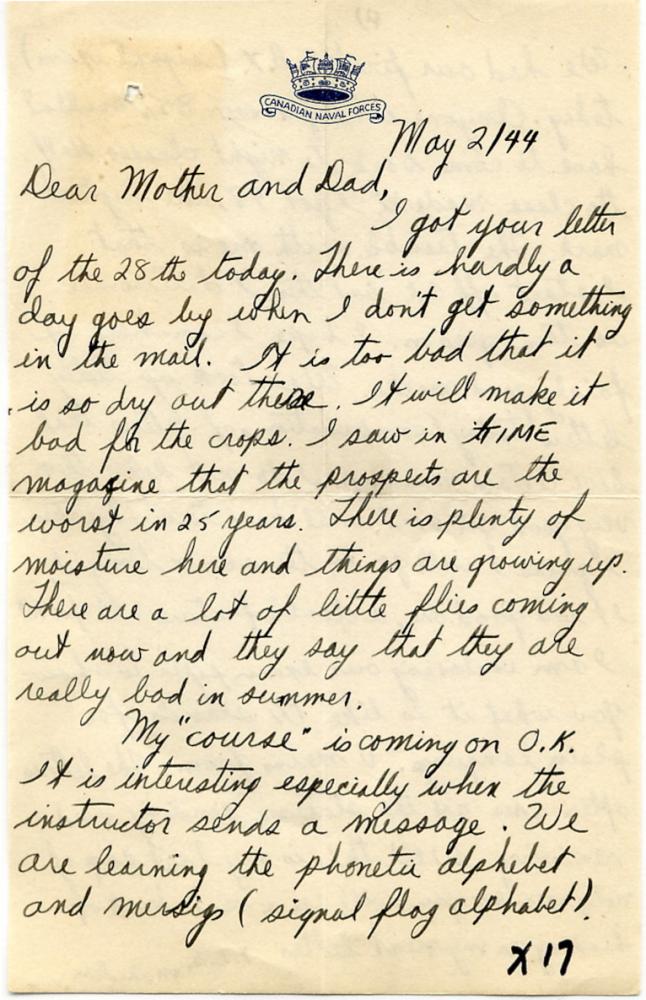 CANADIAN NAVAL FORCES
May 2/44
Dear Mother and Dad,
I got your letter
of the 28th today. There is hardly a
day goes by when I don't get something
in the mail. It is too bad that it
is so dry out there. It will make it
bad for the crops. I saw in TIME
magazine that the prospects are the
worst in 25 years. There is plenty of
moisture here and things are growing up.
There are a lot of little flies coming
out now and they say that they are
really bad in summer.
My "course" is coming on O.K.
It is interesting especially when the
instructor sends a message. We
are learning the phonetic alphebet
and mersigs (signal flag alphabet).
X17